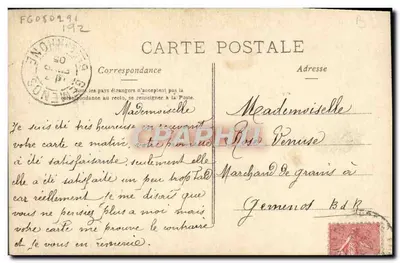 FG080291
192
CARTE POSTALE
Correspondance
Adresse
Tous les pays étrangers n'acceptent pas la
correspondance au recto, se renseigner à la Poste.
GEMENOS
Mademoiselle
Je suis été très heureuse en recevant
votre carte ce matin,
a été satisfaisante, seulement elle
elle a été satisfaite un peu trop tard
car réellement je me disais que
vous ne pensiez plus a moi mais
votre carte me prouve le contraire
et je vous en remercie
Mademoiselle
Rose Venuse
Marchand de grains à
Gemenos B d R